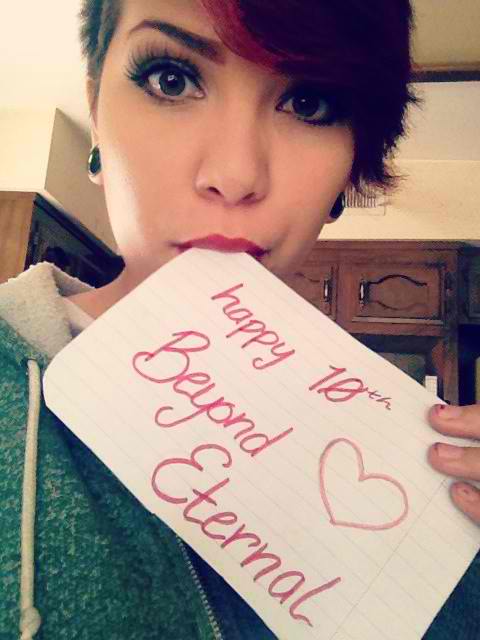 happy 10th
Beyond
Eternal